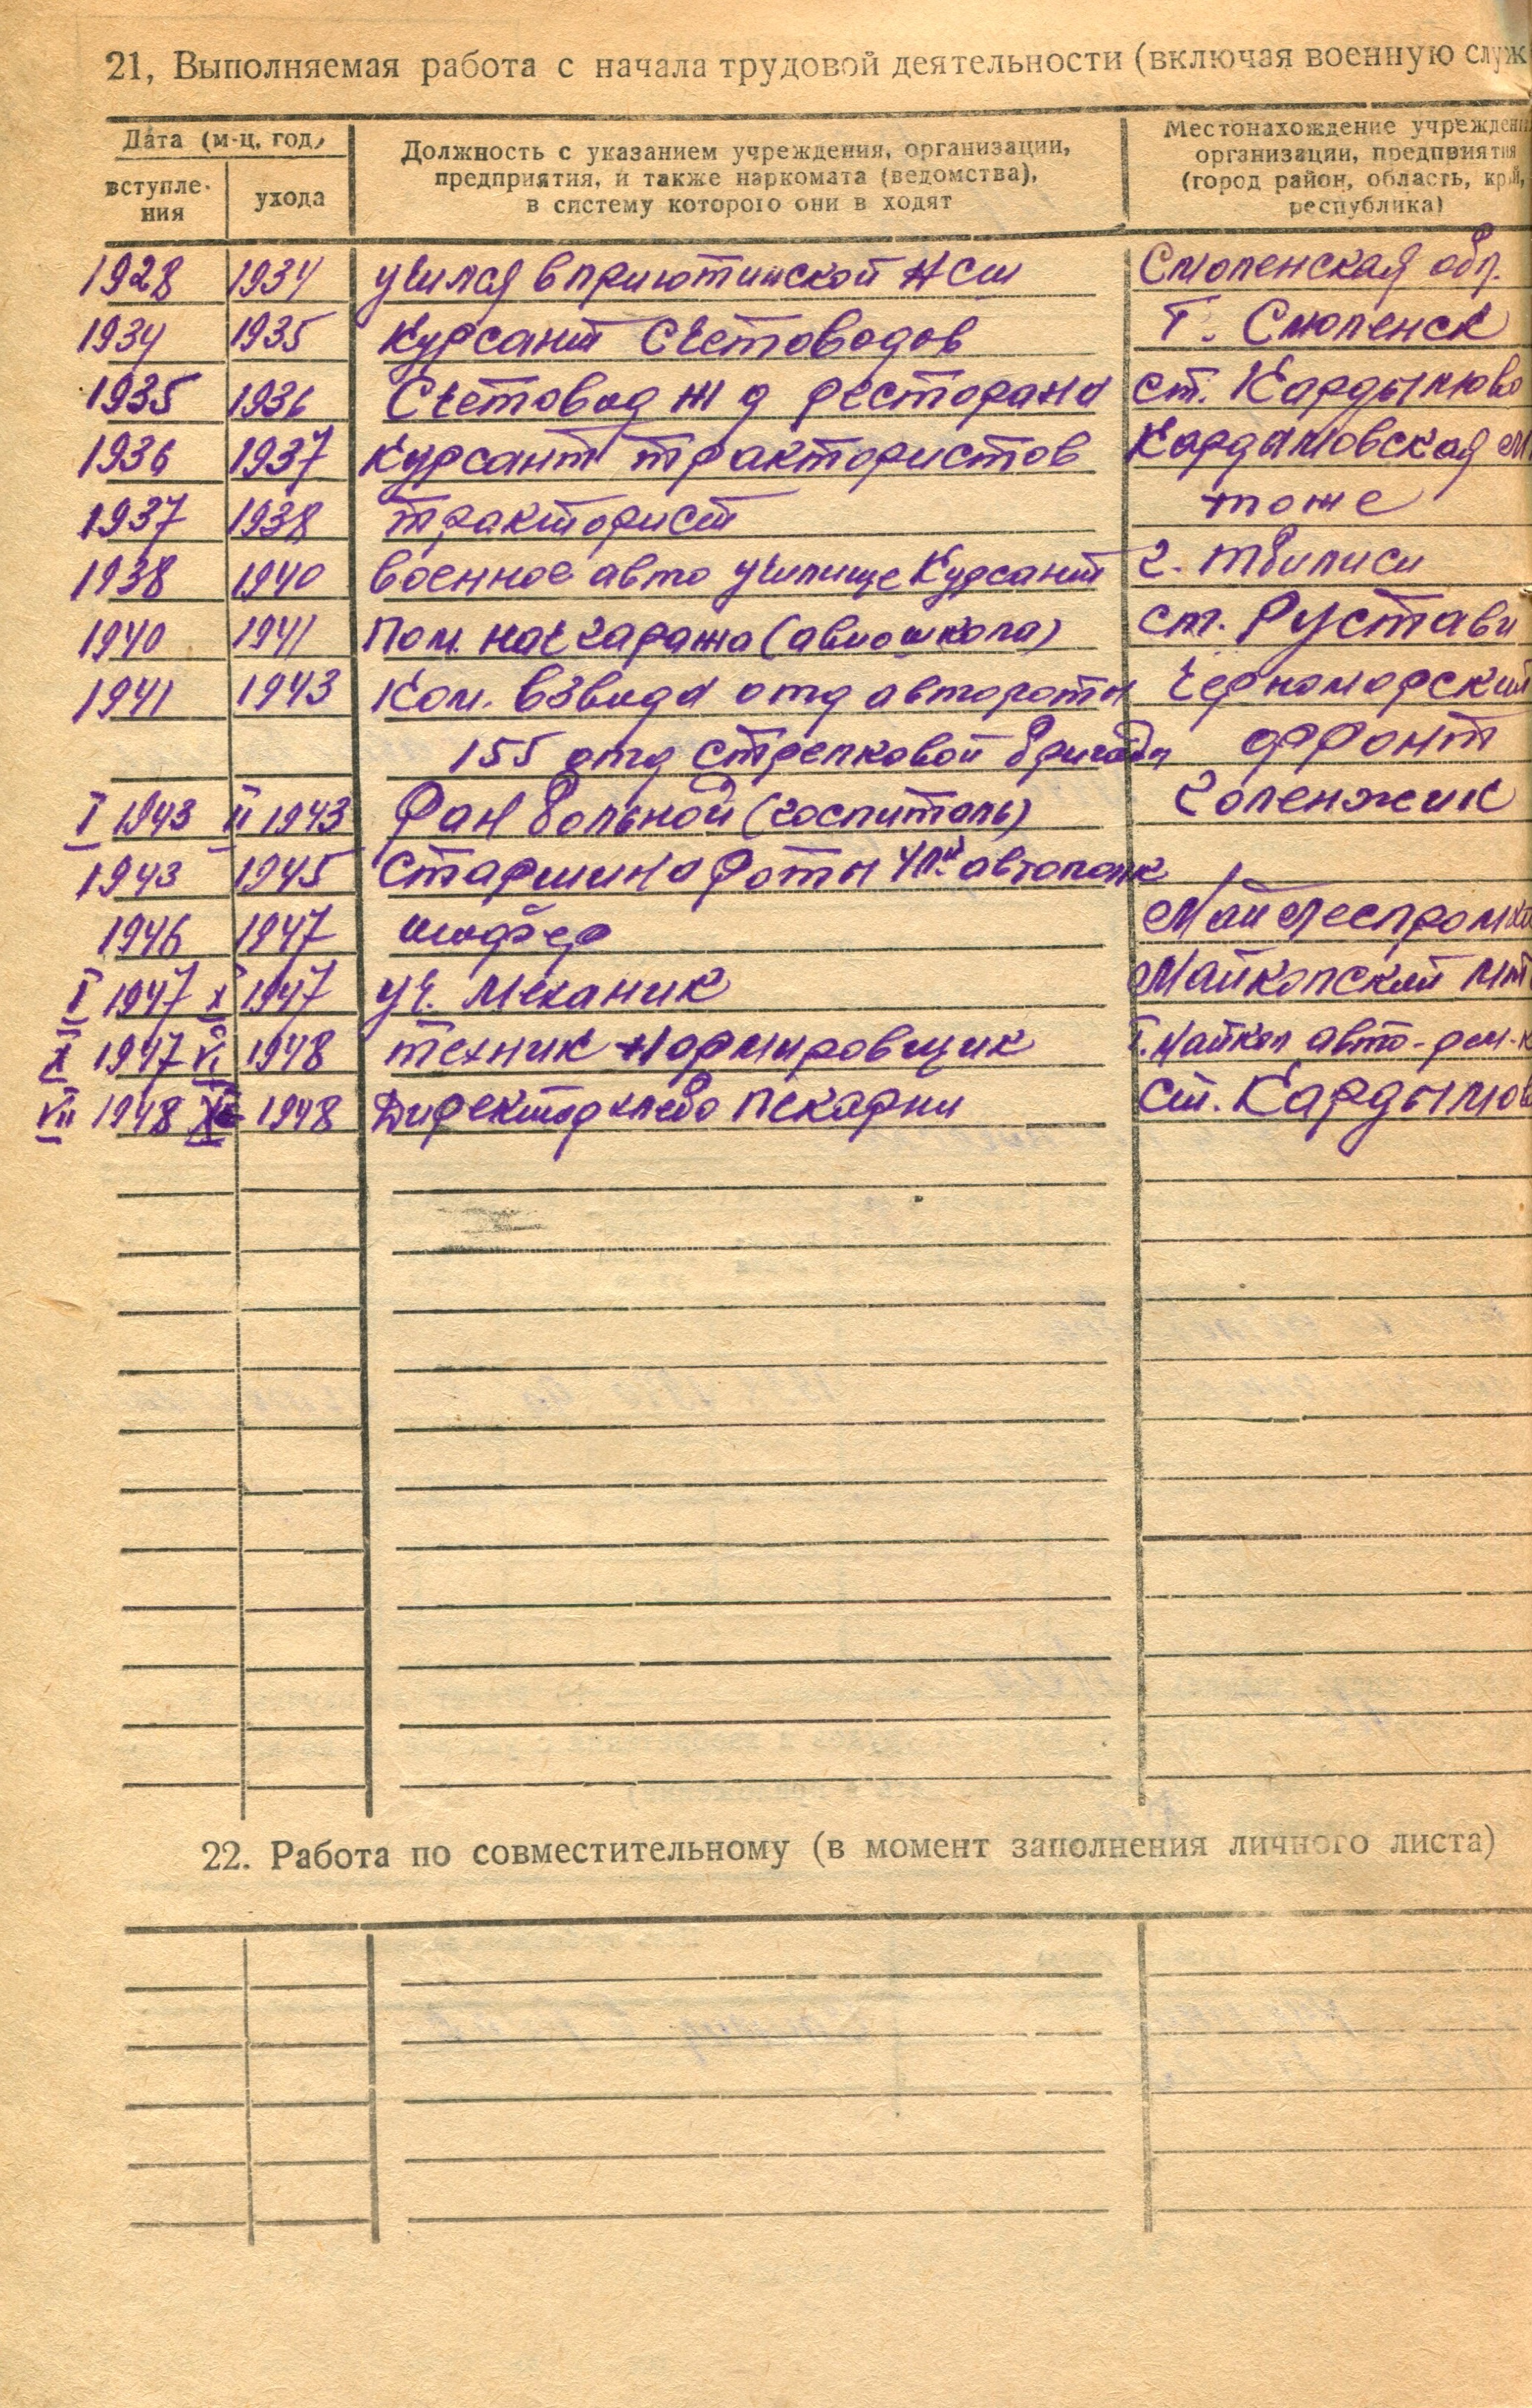 21, Выполняемая работа с начала трудовой деятельности (включая военную служ
Дата (м-ц, год)
вступле-
ния
ухода
Должность с указанием учреждения, организации,
предприятия, и также наркомата (ведомства),
в систему которого они в ходят
Местонахождение учреждени
организации, предприятия
(город район, область, край,
республика)
1928 1934 учился в приютинской НСШ Смоленская обл.
1934 1935 Курсант Счетоводов г. Смоленск
1935 1936 Счетовод ж д ресторана ст. Кардымово
1936 1937 Курсант трактористов Кардымовская М
1937 1938 тракторист тоже
1938 1940 военное авто училище Курсант г. Тбилиси
1940 1941 Пом. нач гаража (авиошкола) ст. Рустави
1941 1943 Ком. взвода отд автороты Черноморский
155 отд стрелковой бригады фронт
I 1943 II 1943 Ран больной (госпиталь) Геленжик
1943 1945 Старшина роты автополк
1946 1947 шофер Май леспромхо
I 1947 X 1947 уч. механик Майкопский мт
X 1947 VI 1948 техник нормировщик г. Майкоп авто-рем-к
VII 1948 1948 Директор хлебо пекарни Ст. Кардымов
22. Работа по совместительному (в момент заполнения личного листа)